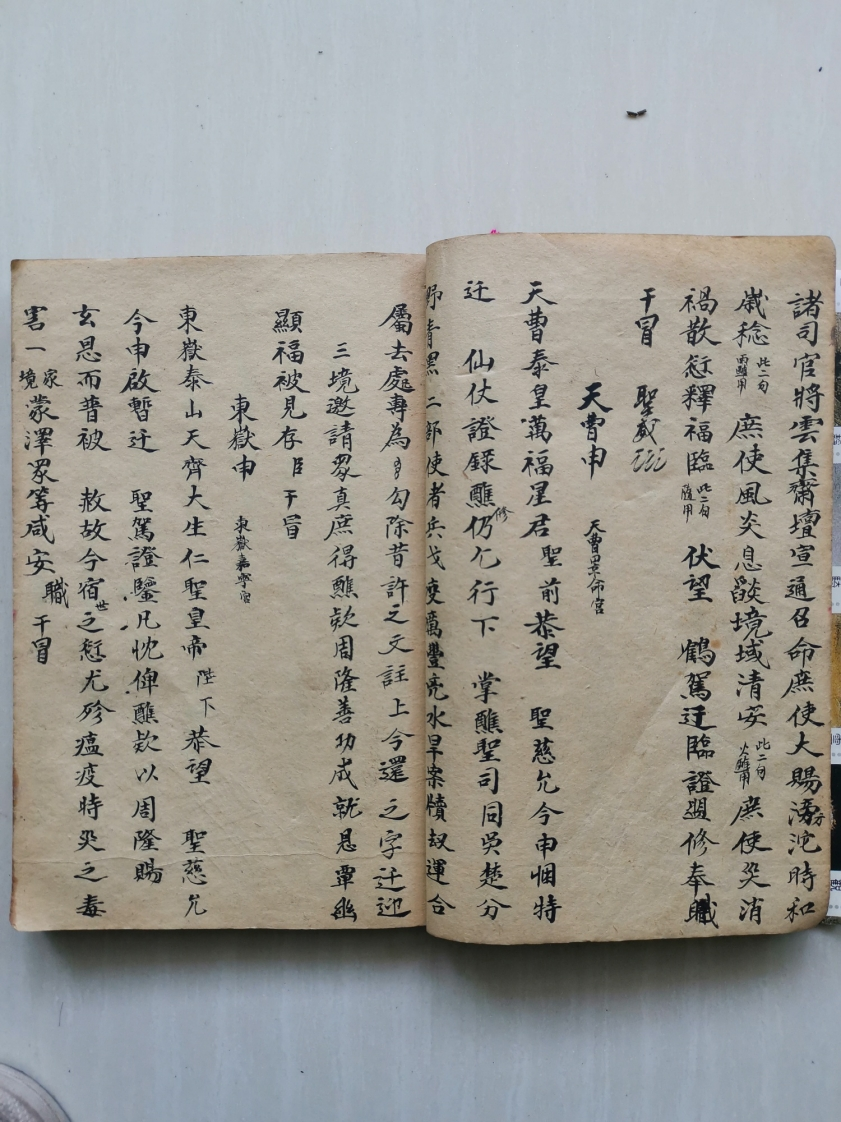 諸司官將雲集齋壇宣通召命庶使大賜滂沱時和
歲稔此二句雨醮用庶使風炎息燄境域清安此二句火醮用庶使災消
禍散愆釋福臨此二句隨用伏望 鶴駕迂臨證盟修奉職
干冒 聖威
天曹申 天曹景命宮
天曹泰皇萬福星君 聖前恭望 聖慈允今申悃特
迂 仙仗證錄修醮仍乞行下 掌醮聖司同吳楚分
野青黑二部使者兵戈麥萬豐亮水旱案牘劫運合
屬去處專為 勾除昔許之文註上今還之字迂迎
三境邀請眾真庶得醮欵周隆善功成就恩覃幽
顯福被見存臣干冒
東嶽申 東嶽嘉寧宮
東嶽泰山天齊大生仁聖皇帝 陛下恭望 聖慈允
今申啟暫迂 聖駕證鑒凡忱俾醮欵以周隆賜
玄恩而普被 赦故今宿世之愆尤殄瘟疫時災之毒
害一家境蒙澤眾等咸安 職干冒